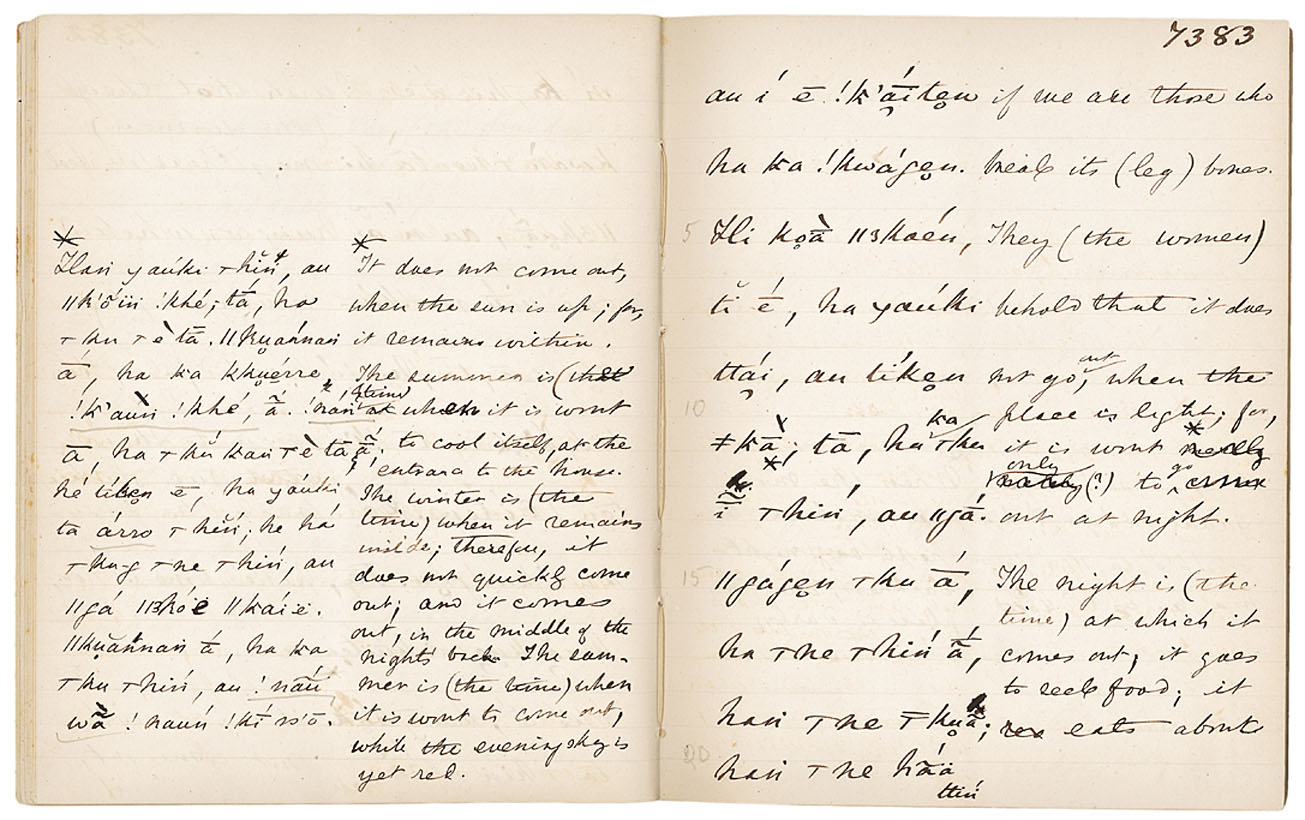 *
Han yaúki ꞇhĭń, au
ǁk'ŏĭń !khé; tá, ha
ꞇku ꞇè tā. ǁkuánnan
á, ha ka khuérre
!k'auǹ !khé, ā̃. !nań
ā, ha ꞇkŭ kan ꞇè tā ā̃,
hé tíken ē, ha yaúki
ta árro ꞇhĭń; he há
ꞇku-g ꞇne ꞇhiń, au
ǁgá ǁɜkóë ǁkáïë.
ǁkŭánnan á, ha ka
ꞇku ꞇhiń, au !náú
wā̃ !nauń !kí ss'ō.
*
It does not come out,
when the sun is up; for,
it remains within.
The summer is (the
time) when it is wont
to cool itself, at the
entrance to the house.
The winter is (the
time) when it remains
inside; therefore, it
does not quickly come
out; and it comes
out, in the middle of the
night's back. The sum-
mer is (the time) when
it is wont to come out,
while the evening sky is
yet red.
7383
au í ē !k'áíten if we are those who
ha ka !kwágen. break its (leg) bones.
5 Hi koā̀ ǁɜkoéń, They (the women)
tĭ é, ha yaúki behold that it does
ttái, au tíken not go out, when the
10 ǂkā̀; tā, ha ka ꞇku place is light; for,
* it is wont * really
only (?) to go come
ī̃ ꞇhiń, au ǁgá. out at night.
15 ǁgágen ꞇku á, The night is (the
time) at which it
ha ꞇne ꞇhiń ā̃, comes out; it goes
to seek food; it
hań ꞇne ꞇkuā̃; eats about
20 hań ꞇne hā́ā
ttiń